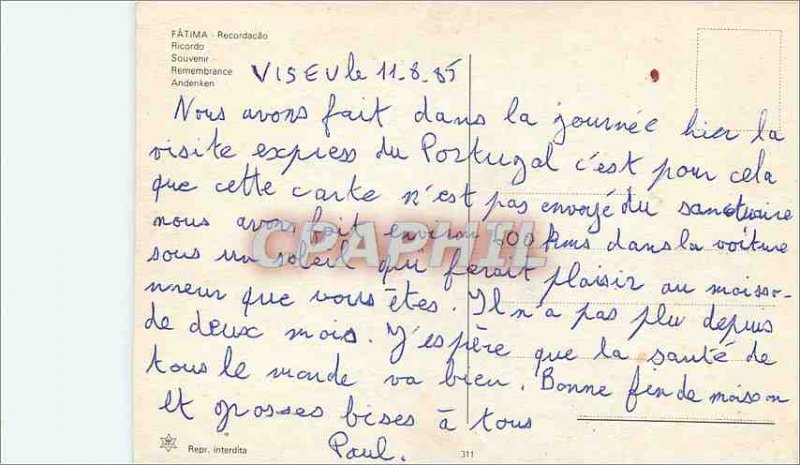 FÁTIMA - Recordação
Ricordo
Souvenir
Remembrance
Andenken
VISEU le 11-8-85
Nous avons fait dans la journée hier la
visite express du Portugal c'est pour cela
que cette carte n'est pas envoyé du sanctuaire
nous avons fait environ 500 kms dans la voiture
sous un soleil qui ferait plaisir au moisson-
nneur que vous êtes. Il n'a pas plu depuis
de deux mois. J'espère que la santé de
tous le monde va bien. Bonne fin de moisson
et grosses bises à tous
Paul.
CPAPHIL
Repr. interdita
311